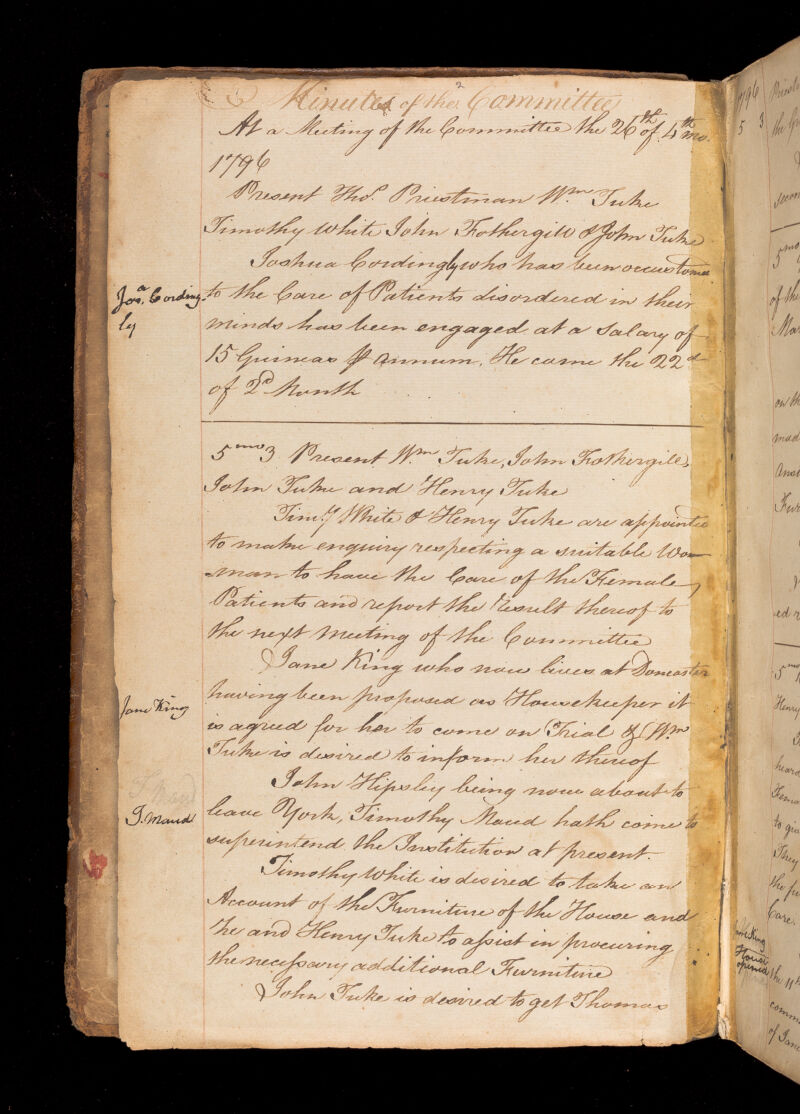 Minutes of the Committee
At a Meeting of the Committee the 26th of 4th mo.
1796
Present Thos. Priestman Wm Tuke
Timothy White John Fothergill & John Tuke
Joshua Cordingly who has been accustomed
Josa. Cording-
ly
to the Care of Patients disordered in their
minds has been engaged at a Salary of
15 Guineas P annum. He came the 22d
of 2d Month
5mo 3 Present Wm Tuke, John Fothergill,
John Tuke and Henry Tuke
Timy White & Henry Tuke are appointed
to make enquiry respecting a suitable Wo-
-man to have the Care of the Female
Patients and report the Result thereof to
the next meeting of the Committee
Jane King who now lives at Doncaster
Jane King
having been proposed as Housekeeper it
is agreed for her to come on Trial & Wm
Tuke is desired to inform her thereof
John Hipsley being now about to
T. Maud
leave York, Timothy Maud hath come to
T. Maud
superintend the Institution at present.
Timothy White is desired to take an
Account of the Furniture of the House and
He and Henry Tuke to assist in procuring
the necessary additional Furniture
John Tuke is desired to get Thomas
1796
5 3
the
5mo
of the
on the
made
5mo
Henry
heard
They
Care.
Jane King
House
opened
the 11th
of Jane